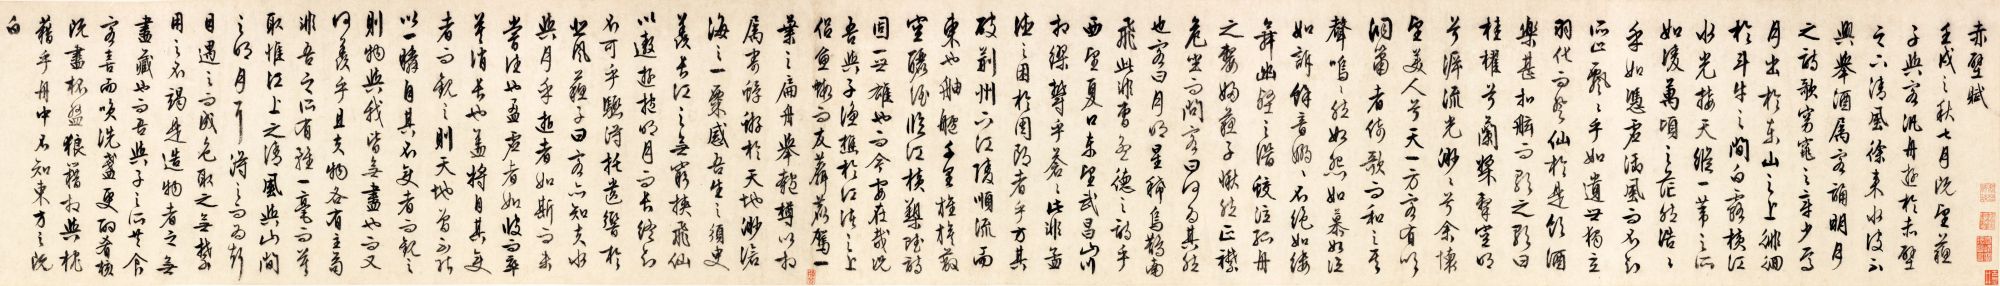 赤壁賦
壬戌之秋七月既望蘇
子與客汎舟遊於赤壁
之下清風徐來水波不
興舉酒屬客誦明月
之詩歌窈窕之章少焉
月出於東山之上徘徊
於斗牛之間白露橫江
水光接天縱一葦之所
如凌萬頃之茫然浩浩
乎如憑虛御風而不知
所止飄飄乎如遺世獨立
羽化而登仙於是飲酒
樂甚扣舷而歌之歌曰
桂櫂兮蘭槳擊空明
兮泝流光渺渺兮余懷
望美人兮天一方客有吹
洞簫者倚歌而和之其
聲嗚嗚然如怨如慕如泣
如訴餘音嫋嫋不絕如縷
舞幽壑之潛蛟泣孤舟
之嫠婦蘇子愀然正襟
危坐而問客曰何為其然
也客曰月明星稀烏鵲南
飛此非曹孟德之詩乎
西望夏口東望武昌山川
相繆鬱乎蒼蒼此非孟
德之困於周郎者乎方其
破荊州下江陵順流而
東也舳艫千里旌旗蔽
空釃酒臨江橫槊賦詩
固一世雄也而今安在哉況
吾與子漁樵於江渚之上
侶魚蝦而友麋鹿駕一
葉之扁舟舉匏樽以相
屬寄蜉蝣於天地渺滄
海之一粟感吾生之須臾
羨長江之無窮挾飛仙
以遨遊抱明月而長終知
不可乎驟得托遺響於
悲風蘇子曰客亦知夫水
與月乎逝者如斯而未
嘗往也盈虛者如彼而卒
莫消長也蓋將自其變
者而觀之則天地曾不能
以一瞬自其不變者而觀之
則物與我皆無盡也而又
何羨乎且夫物各有主苟
非吾之所有雖一毫而莫
取惟江上之清風與山間
之明月耳得之而為聲
目遇之而成色取之無禁
用之不竭是造物者之無
盡藏也而吾與子之所共食
客喜而笑洗盞更酌肴核
既盡杯盤狼藉相與枕
藉乎舟中不知東方之既
白